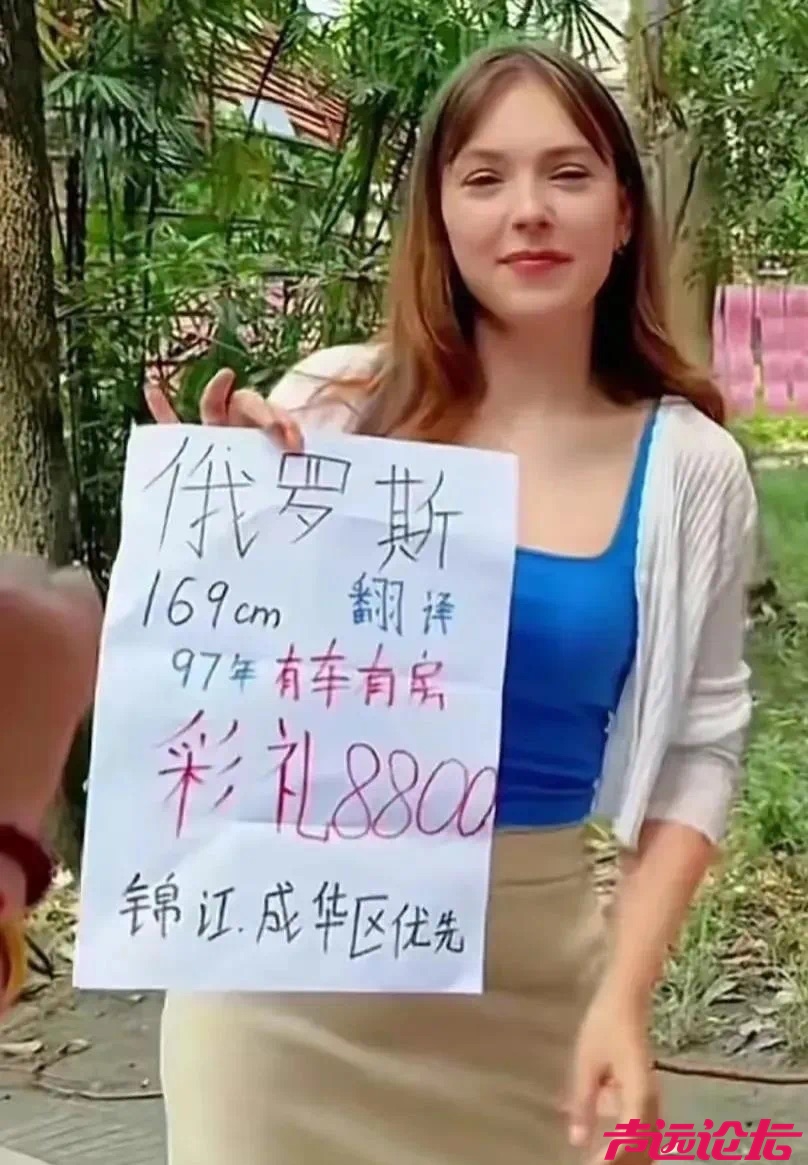 俄罗斯
169cm 翻译
97年有车有房
彩礼8800
锦江.成华区优先
声远论坛